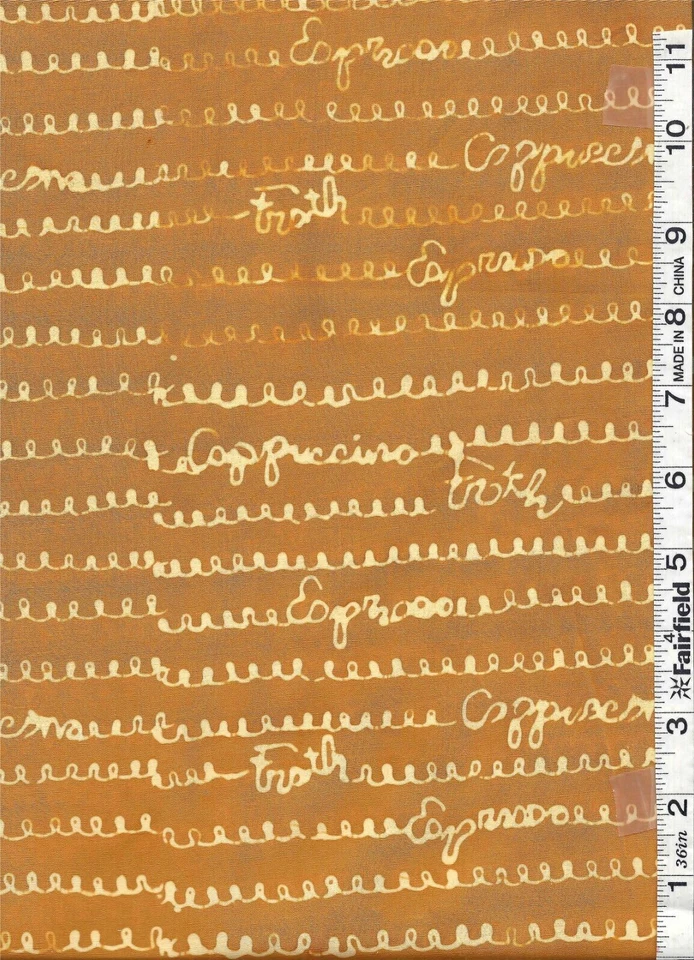 Espresso
Cappuccin
cino
Froth
Espresso
Cappuccino
Froth
Espresso
Cappuccin
cino
Froth
Espresso
11
10
9
CHINA
8
MADE IN
7
6
5
4
Fairfield
3
2
36in
1